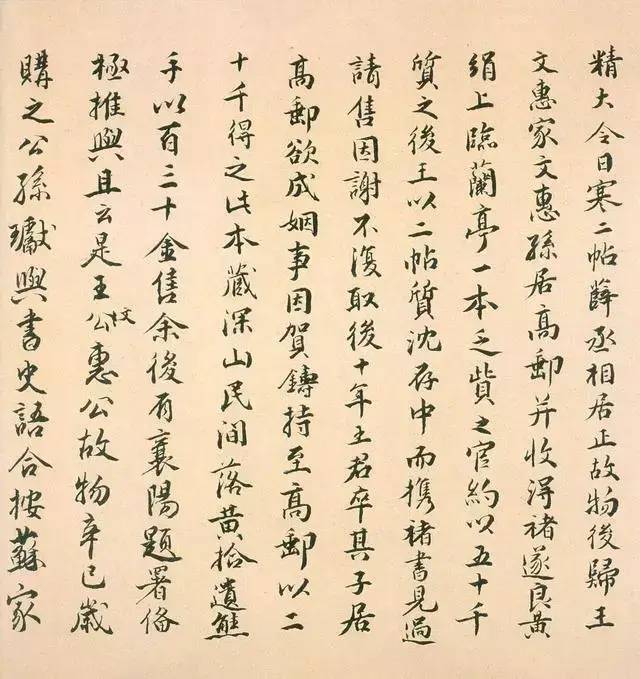 精大令日寒二帖薛丞相居正故物後歸王
文惠家文惠孫居高郵并收得褚遂良黃
絹上臨蘭亭一本乏貲之官約以五十千
質之後王以二帖質沈存中而携褚書見過
請售因謝不復取後十年王君卒其子居
高郵欲成姻事因賀鑄持至高郵以二
十千得之此本藏深山民間落黃拾遺熊
手以百三十金售余後有襄陽題署俻
極推與且云是王文惠公故物辛巳歲
購之公孫瓛與書史語合按蘇家